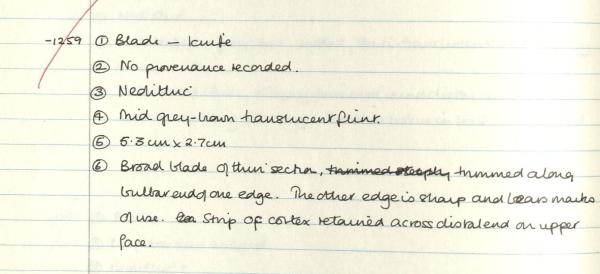 -1259 ① Blade - knife
② No provenance recorded.
③ Neolithic
④ Mid grey-brown translucent flint.
⑤ 5.3 cm x 2.7cm
⑥ Broad blade of thin section, trimmed steeply trimmed along
bulbar end of one edge. The other edge is sharp and bears marks
of use. Strip of cortex retained across distal end on upper
face.